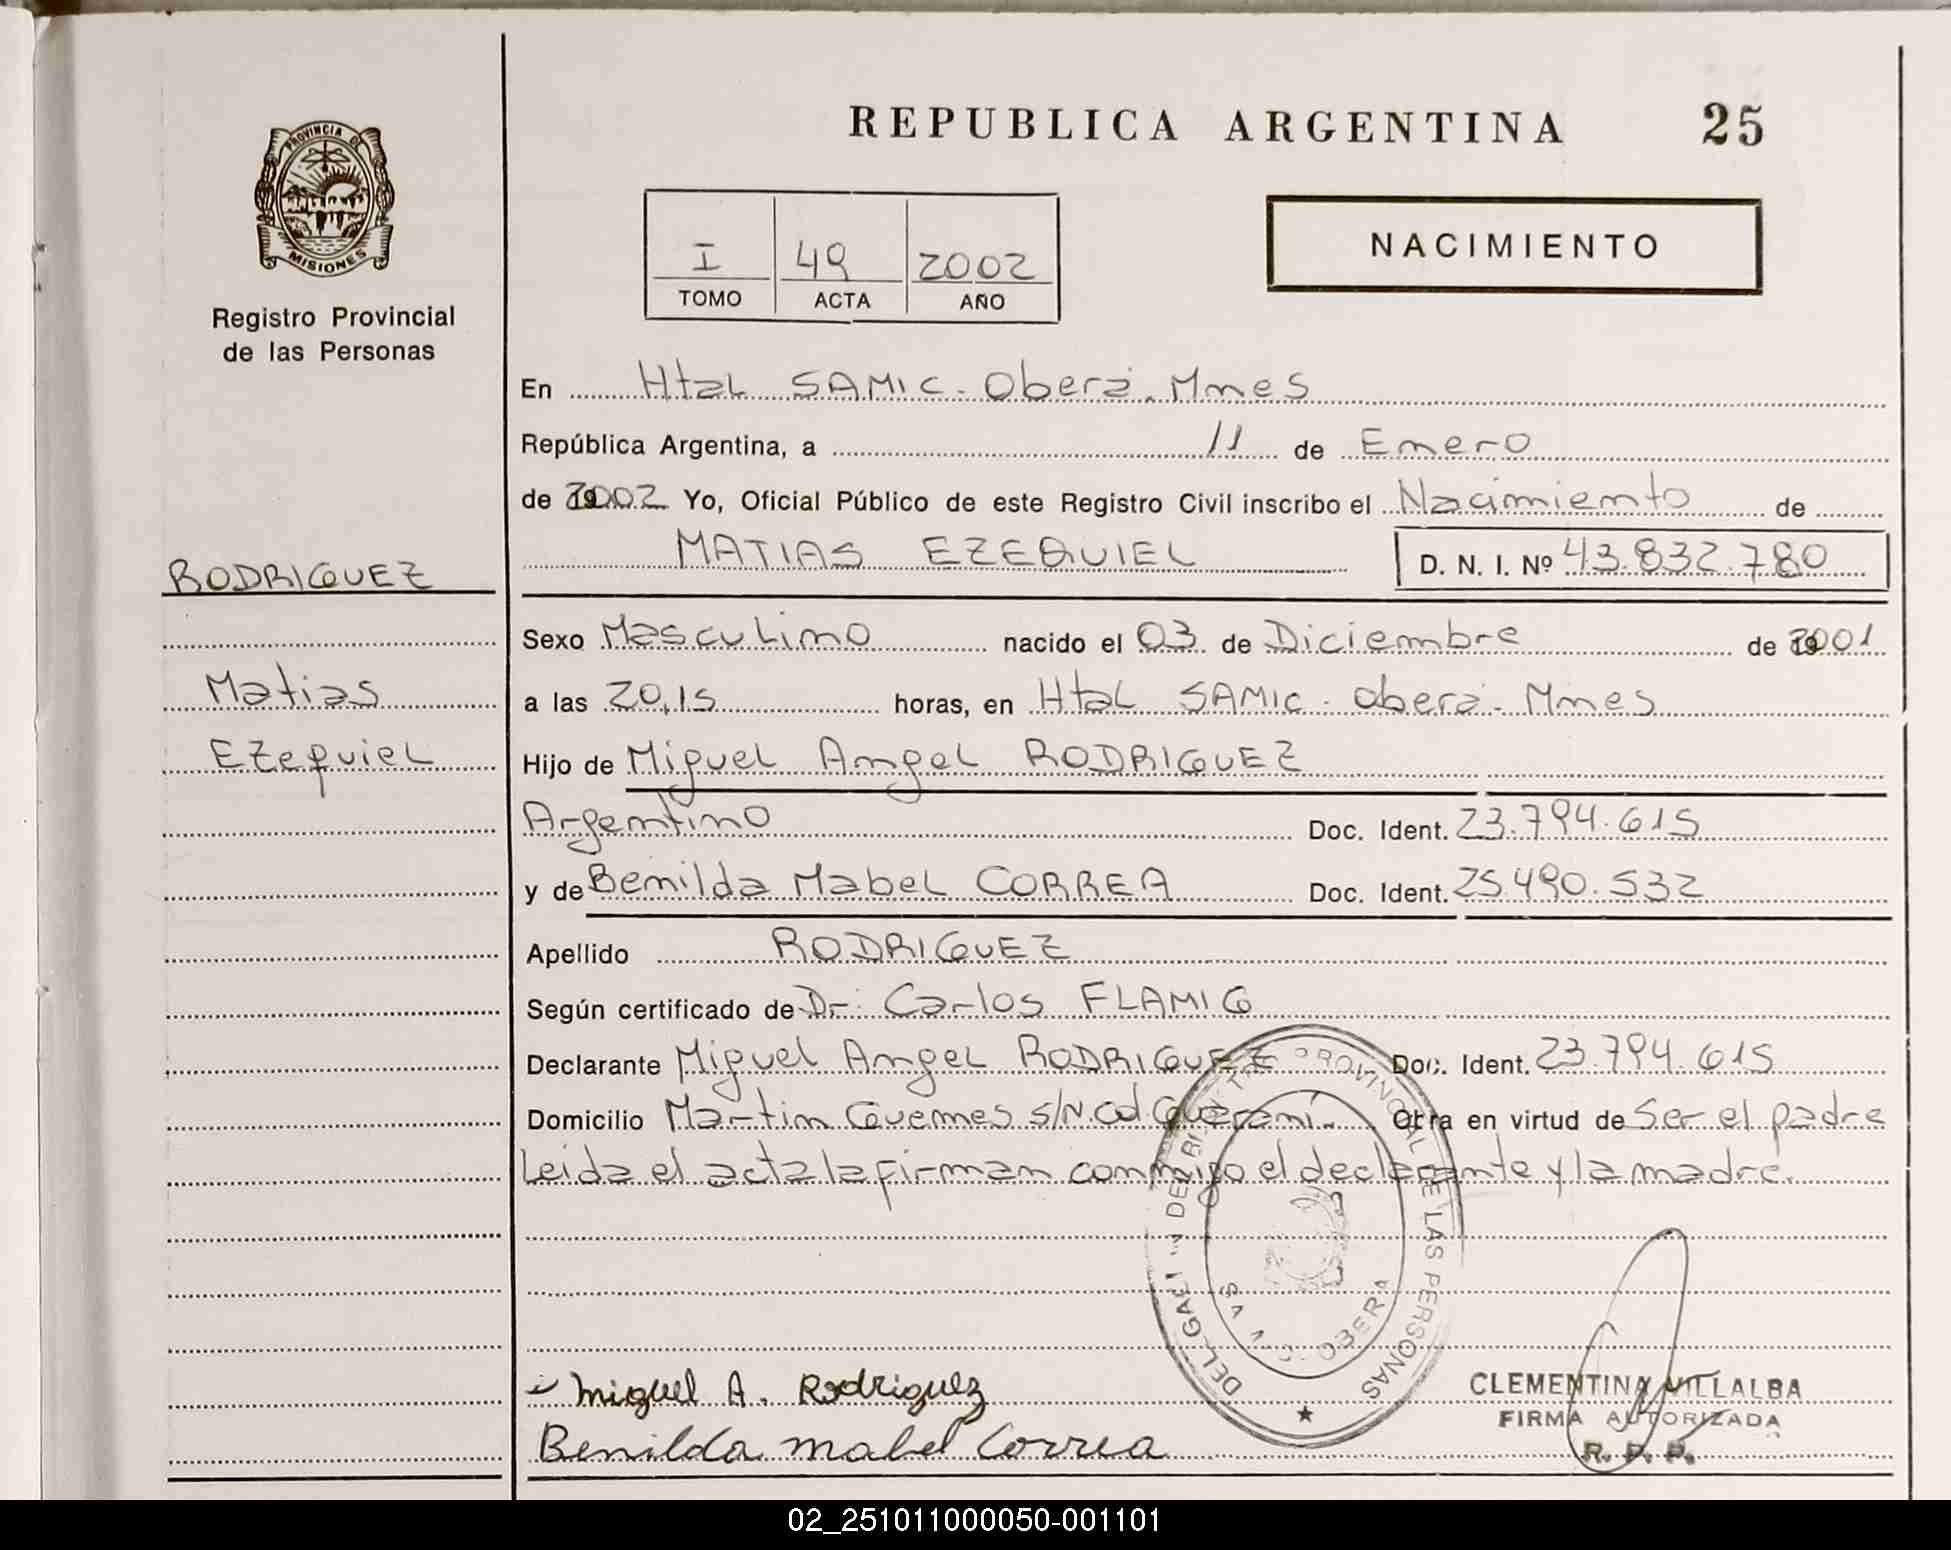 REPUBLICA ARGENTINA 25
PROVINCIA DE
MISIONES
Registro Provincial
de las Personas
I 49 2002
TOMO ACTA AÑO
NACIMIENTO
En Htal SAMIC - Oberá. Mnes
República Argentina, a 11 de Enero
de 2002 Yo, Oficial Público de este Registro Civil inscribo el Nacimiento de
MATIAS EZEQUIEL D. N. I. Nº 43.832.780
RODRIGUEZ
Matias
Ezequiel
Sexo Masculino nacido el 03 de Diciembre de 2001
a las 20,15 horas, en Htal SAMIC - Oberá - Mnes
Hijo de Miguel Angel RODRIGUEZ
Argentino Doc. Ident. 23.794.615
y de Benilda Mabel CORREA Doc. Ident. 25.490.532
Apellido RODRIGUEZ
Según certificado de Dr. Carlos FLAMIG
Declarante Miguel Angel RODRIGUEZ Doc. Ident. 23.794.615
Domicilio Martin Guemes s/N. Cd. Guaraní. Obra en virtud de Ser el padre
Leida el acta la firman conmigo el declarante y la madre.
PROVINCIAL DE LAS PERSONAS
OBERA
Miguel A. Rodriguez
Benilda Mabel Correa
CLEMENTINA VILLALBA
FIRMA AUTORIZADA
R. P. P.
02_251011000050-001101